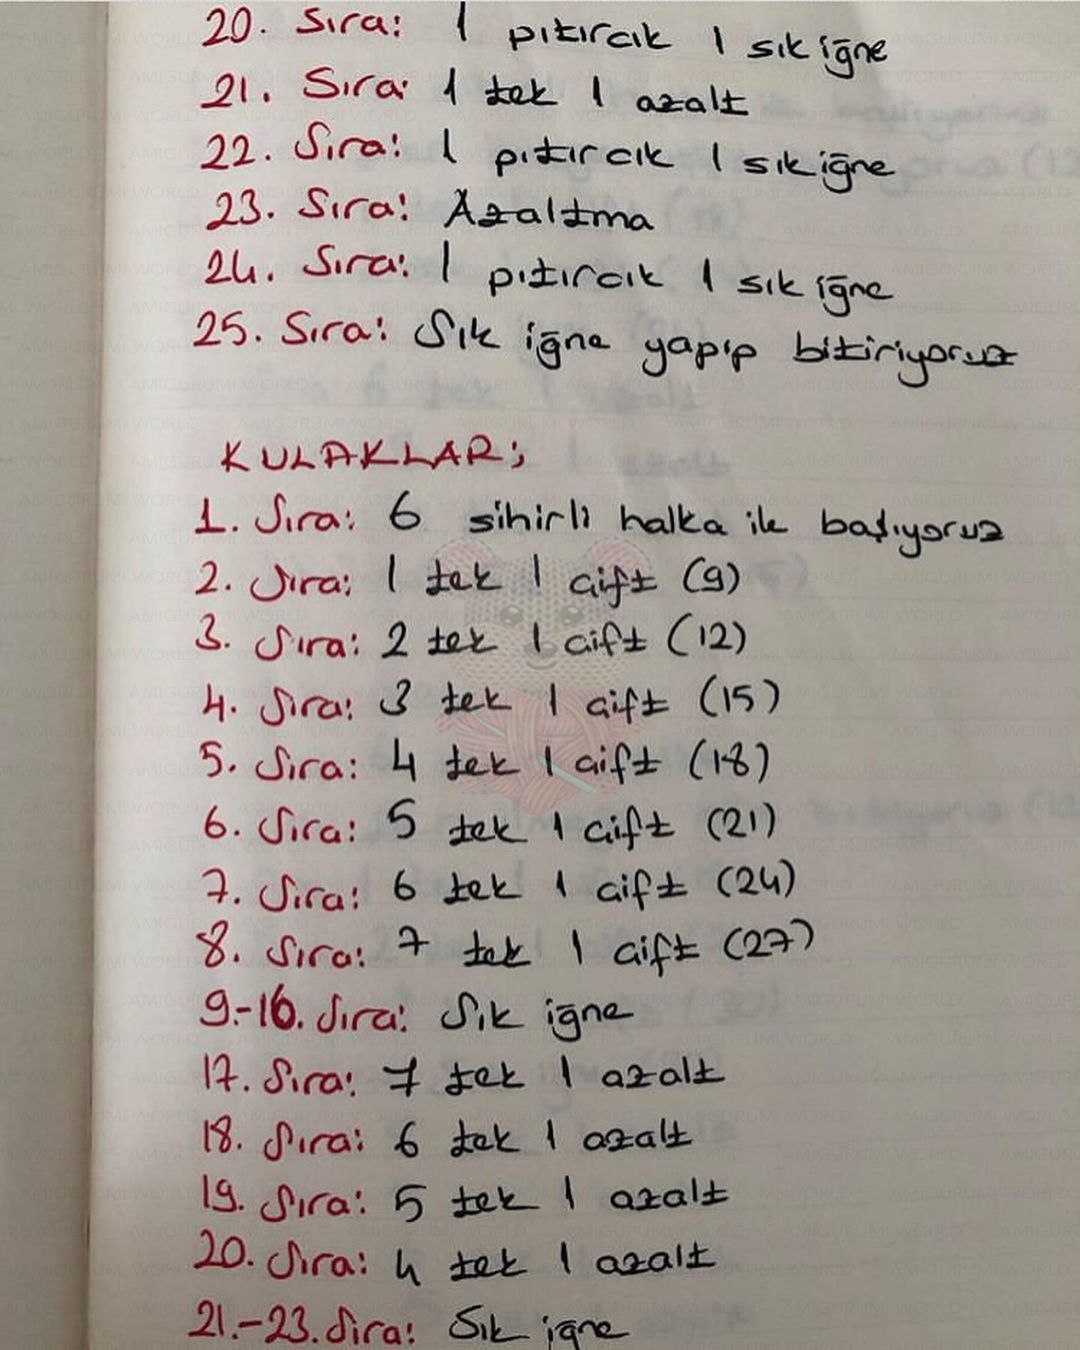 20. Sıra: 1 pıtırcık 1 sık iğne
21. Sıra: 1 tek 1 azalt
22. Sıra: 1 pıtırcık 1 sık iğne
23. Sıra: Azaltma
24. Sıra: 1 pıtırcık 1 sık iğne
25. Sıra: Sık iğne yapıp bitiriyoruz
KULAKLAR;
1. Sıra: 6 sihirli halka ile başlıyoruz
2. Sıra: 1 tek 1 çift (9)
3. Sıra: 2 tek 1 çift (12)
4. Sıra: 3 tek 1 çift (15)
5. Sıra: 4 tek 1 çift (18)
6. Sıra: 5 tek 1 çift (21)
7. Sıra: 6 tek 1 çift (24)
8. Sıra: 7 tek 1 çift (27)
9.-16. Sıra: Sık iğne
17. Sıra: 7 tek 1 azalt
18. Sıra: 6 tek 1 azalt
19. Sıra: 5 tek 1 azalt
20. Sıra: 4 tek 1 azalt
21.-23. Sıra: Sık iğne